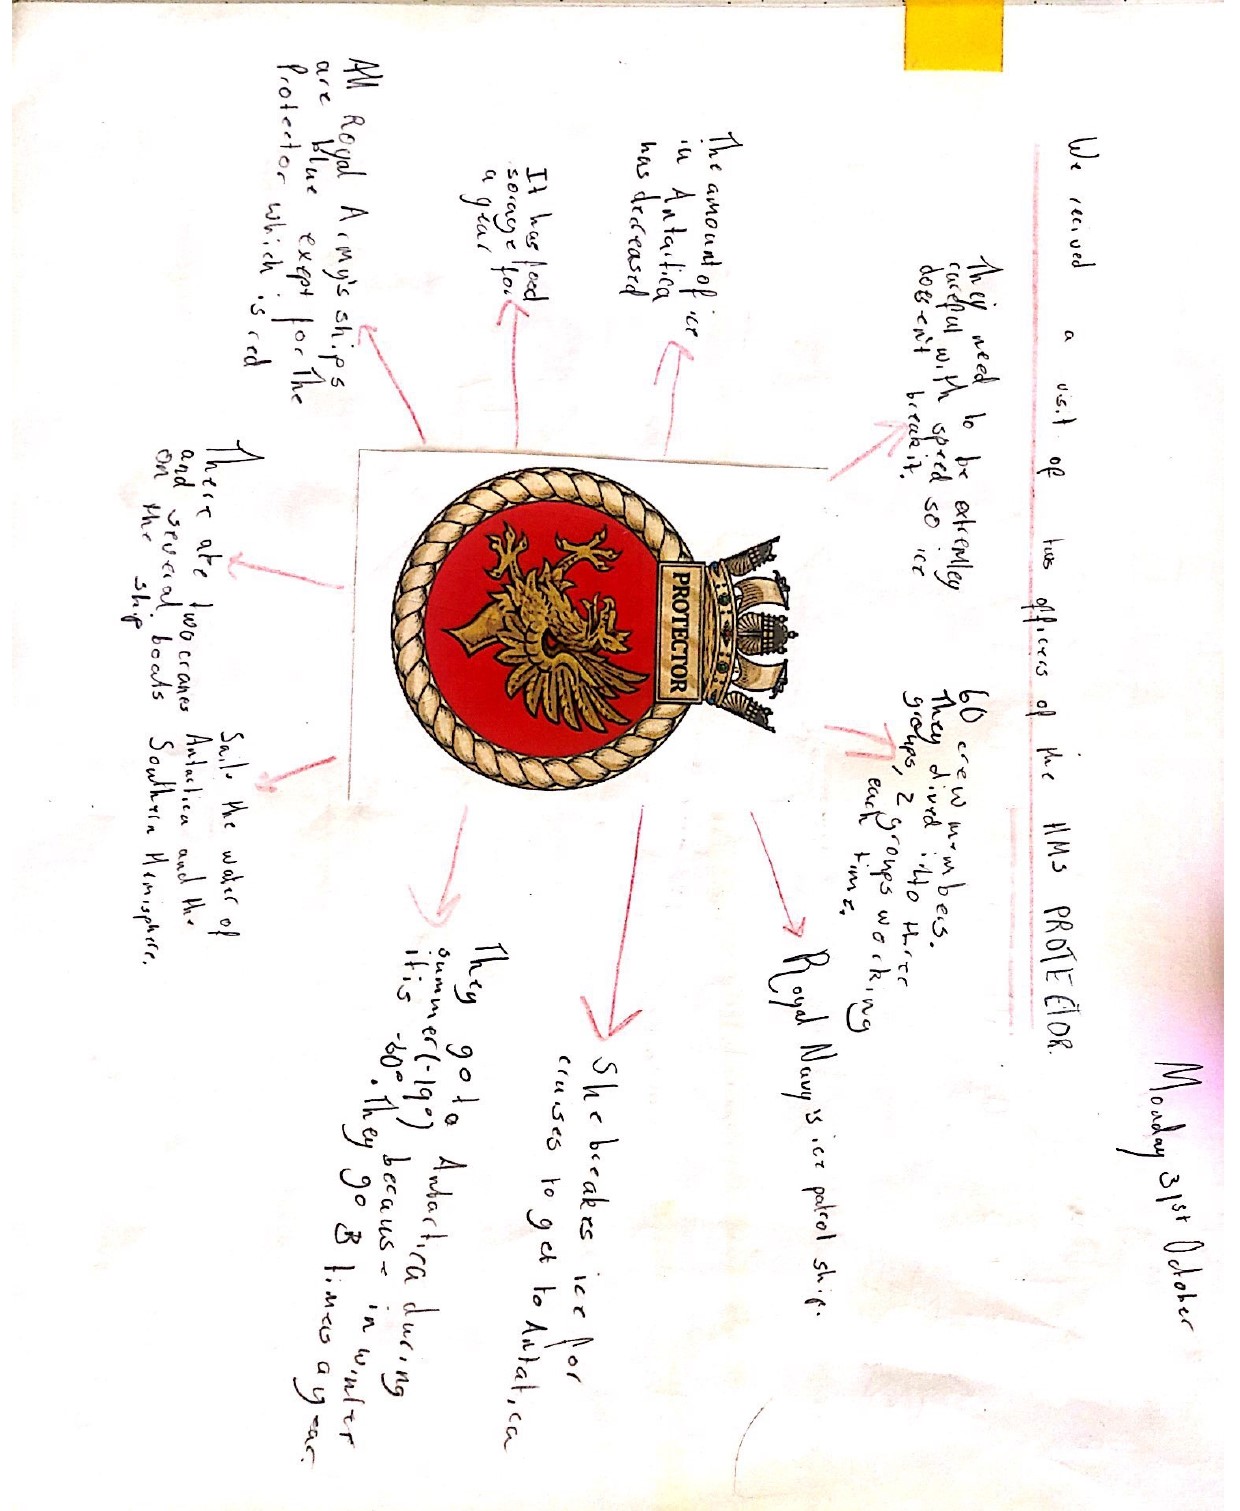 Monday 31st October
We recived a visit of two officers of the HMS PROTECTOR.
They need to be extremley
careful with speed so ice
does-en't break it.
60 crew members.
They dived into three
groups, 2 groups working
each time.
The amount of ice
in Antartica
has decreased
Royal Navy's ice patrol ship.
It has food
sorage for
a year
PROTECTOR
She breakes ice for
cruises to get to Antatica
All Royal Army's ships
are blue exept for the
Protector which is red
They go to Antartica during
summer (-19°) because in winter
it is -60°. They go 3 times a year.
There are two cranes
and several boats
on the ship
Sails the water of
Antartica and the
Southern Hemisphere.